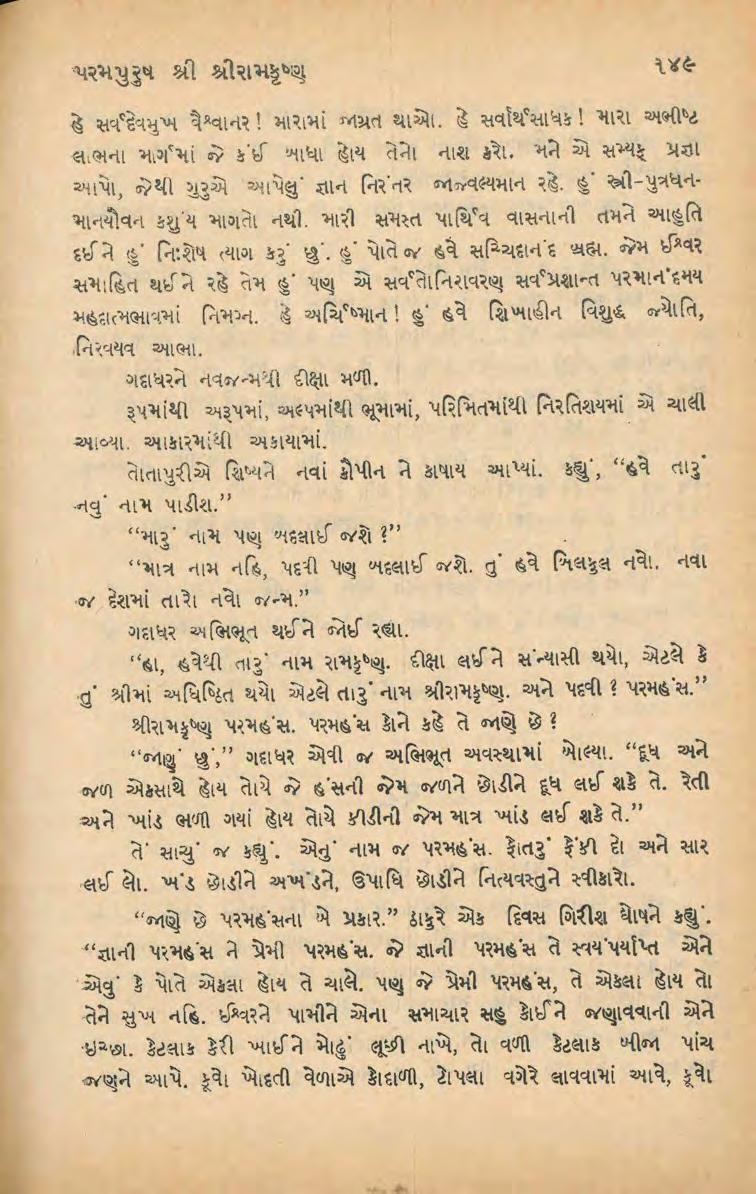 પરમપુરુષ શ્રી શ્રીરામકૃષ્ણ ૧૪૯
હે સર્વદેવમુખ વૈશ્વાનર! મારામાં જાગ્રત થાઓ. હે સર્વાર્થસાધક! મારા અભીષ્ટ
લાભના માર્ગમાં જે કંઈ બાધા હોય તેનો નાશ કરો. મને એ સમ્યક્ પ્રજ્ઞા
આપો, જેથી ગુરુએ આપેલું જ્ઞાન નિરંતર જાજ્વલ્યમાન રહે. હું સ્ત્રી-પુત્રધન-
માનયૌવન કશુંય માગતો નથી. મારી સમસ્ત પાર્થિવ વાસનાની તમને આહુતિ
દઈને હું નિઃશેષ ત્યાગ કરું છું. હું પોતે જ હવે સચ્ચિદાનંદ બ્રહ્મ. જેમ ઈશ્વર
સમાહિત થઈને રહે તેમ હું પણ એ સર્વતોનિરાવરણ સર્વપ્રશાન્ત પરમાનંદમય
મહદાત્મભાવમાં નિમગ્ન. હે અર્ચિષ્માન! હું હવે શિખાહીન વિશુદ્ધ જ્યોતિ,
નિરવયવ આભા.
ગદાધરને નવજન્મથી દીક્ષા મળી.
રૂપમાંથી અરૂપમાં, અલ્પમાંથી ભૂમામાં, પરિમિતમાંથી નિરતિશયમાં એ ચાલી
આવ્યા. આકારમાંથી અકાયામાં.
તોતાપુરીએ શિષ્યને નવાં કૌપીન ને કાષાય આપ્યાં. કહ્યું, “હવે તારું
નવું નામ પાડીશ.”
“મારું નામ પણ બદલાઈ જશે ?”
“માત્ર નામ નહિ, પદવી પણ બદલાઈ જશે. તું હવે બિલકુલ નવો. નવા
જ દેશમાં તારો નવો જન્મ.”
ગદાધર અભિભૂત થઈને જોઈ રહ્યા.
“હા, હવેથી તારું નામ રામકૃષ્ણ. દીક્ષા લઈને સંન્યાસી થયો, એટલે કે
તું શ્રીમાં અધિષ્ઠિત થયો એટલે તારું નામ શ્રીરામકૃષ્ણ. અને પદવી ? પરમહંસ.”
શ્રીરામકૃષ્ણ પરમહંસ. પરમહંસ કોને કહે તે જાણે છે ?
“જાણું છું,” ગદાધર એવી જ અભિભૂત અવસ્થામાં બોલ્યા. “દૂધ અને
જળ એકસાથે હોય તોયે જે હંસની જેમ જળને છોડીને દૂધ લઈ શકે તે. રેતી
અને ખાંડ ભળી ગયાં હોય તોયે કીડીની જેમ માત્ર ખાંડ લઈ શકે તે.”
તેં સાચું જ કહ્યું. એનું નામ જ પરમહંસ. ફોતરું ફેંકી દો અને સાર
લઈ લો. ખંડ છોડીને અખંડને, ઉપાધિ છોડીને નિત્યવસ્તુને સ્વીકારો.
“જાણે છે પરમહંસના બે પ્રકાર.” ઠાકુરે એક દિવસ ગિરીશ ઘોષને કહ્યું.
“જ્ઞાની પરમહંસ ને પ્રેમી પરમહંસ. જે જ્ઞાની પરમહંસ તે સ્વયંપર્યાપ્ત એને
એવું કે પોતે એકલા હોય તે ચાલે. પણ જે પ્રેમી પરમહંસ, તે એકલા હોય તો
તેને સુખ નહિ. ઈશ્વરને પામીને એના સમાચાર સહુ કોઈને જણાવવાની એને
ઇચ્છા. કેટલાક કેરી ખાઈને મોઢું લૂછી નાખે, તો વળી કેટલાક બીજા પાંચ
જણને આપે. કૂવો ખોદતી વેળાએ કોદાળી, ટોપલા વગેરે લાવવામાં આવે, કૂવો